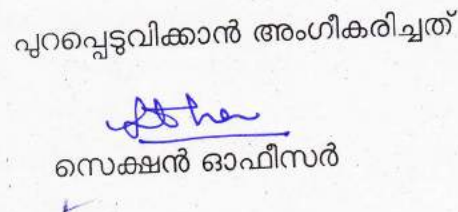 പുറപ്പെടുവിക്കാൻ അംഗീകരിച്ചത്
സെക്ഷൻ ഓഫീസർ